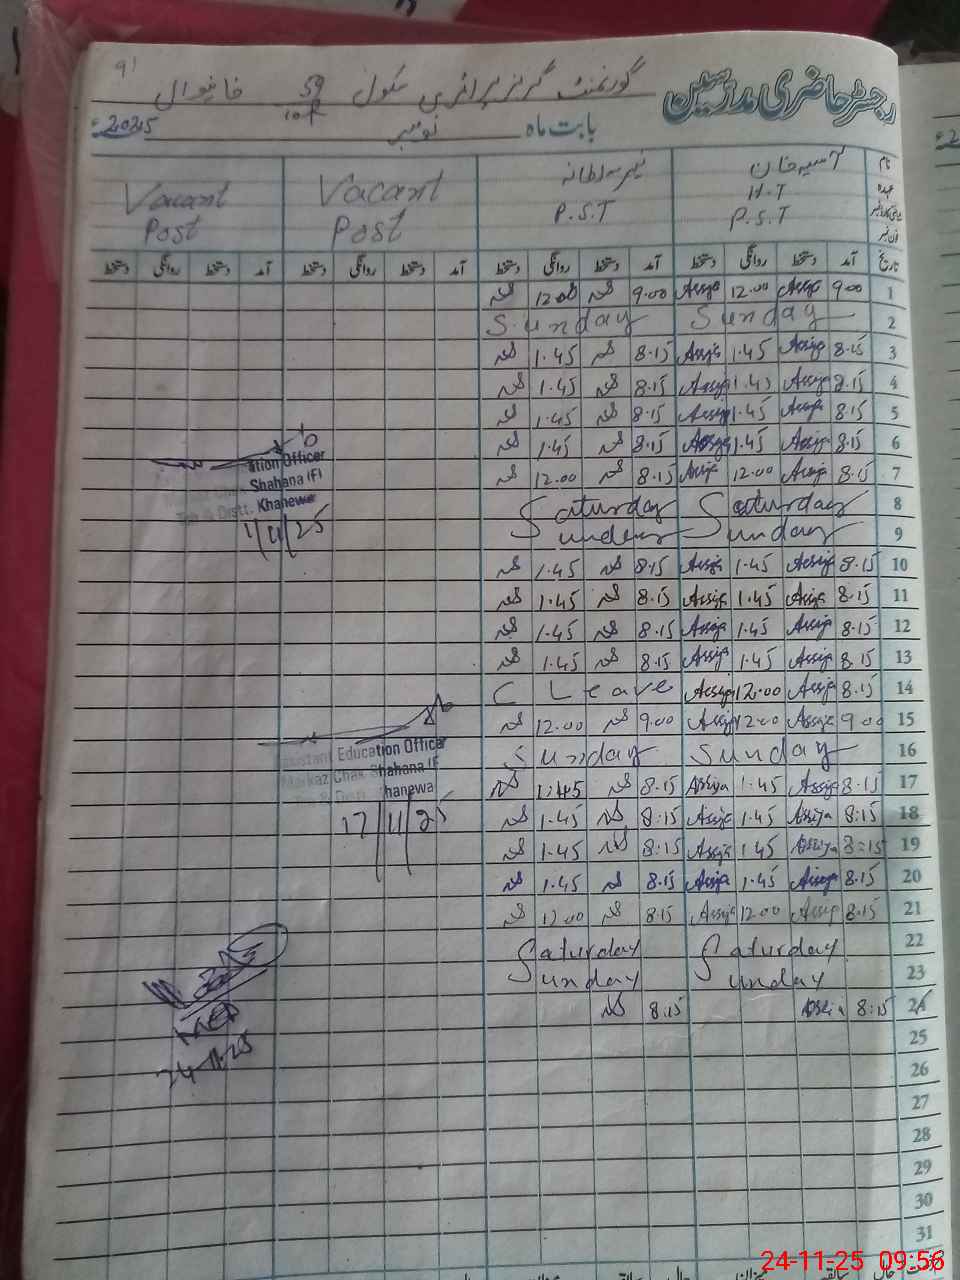 91
رجسٹر حاضری مدرسین گورنمنٹ گرلز پرائمری سکول 59/10R خانیوال
بابت ماہ نومبر 2025ء
نام آسیہ خان Vacant Vacant
عہدہ H.T P.S.T Post Post
P.S.T
تاریخ آمد دستخط روانگی دستخط آمد دستخط روانگی دستخط آمد دستخط روانگی دستخط آمد دستخط روانگی دستخط
1 9.00 Assiya 12.00 Assiya 9.00 12.00
2 Sunday Sunday
3 8.15 Assiya 1.45 Assiya 8.15 1.45
4 8.15 Assiya 1.45 Assiya 8.15 1.45
5 8.15 Assiya 1.45 Assiya 8.15 1.45
6 8.15 Assiya 1.45 Assiya 8.15 1.45
7 8.15 Assiya 12.00 Assiya 8.15 12.00
8 Saturday Saturday
9 Sunday Sunday
10 8.15 Assiya 1.45 Assiya 8.15 1.45
11 8.15 Assiya 1.45 Assiya 8.15 1.45
12 8.15 Assiya 1.45 Assiya 8.15 1.45
13 8.15 Assiya 1.45 Assiya 8.15 1.45
14 8.15 Assiya 12.00 Assiya C Leave
15 9.00 Assiya 12.00 Assiya 9.00 12.00
16 Sunday Sunday
17 8.15 Assiya 1.45 Assiya 8.15 1.45
18 8:15 Assiya 1.45 Assiya 8:15 1.45
19 8:15 Assiya 1.45 Assiya 8:15 1.45
20 8.15 Assiya 1.45 Assiya 8.15 1.45
21 8.15 Assiya 12.00 Assiya 8.15 12.00
22 Saturday Saturday
23 Sunday Sunday
24 8:15 Assiya 8.15
25
26
27
28
29
30
31
ation Officer
Shahana (F)
Distt. Khanewa
1/11/25
Assistant Education Officer
Markaz Chak Shahana (F
Distt. Khanewa
17/11/25
24-11-25
24-11-25 09:56